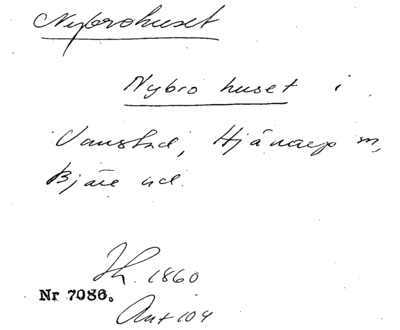 Nybrohuset
Nybro huset i
Vanstad, Hjärnarp m,
Bjäre hd.
Hfl. 1860
Nr 7086.
Ant 104